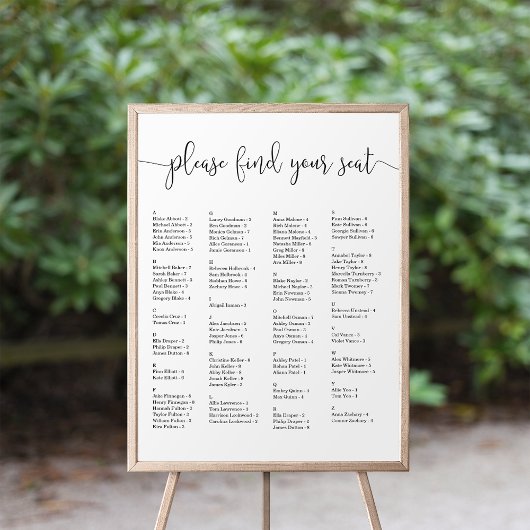 please find your seat
A
Blake Abbott - 2
Michael Abbott - 2
Erin Anderson - 3
John Anderson - 3
Mia Anderson - 3
Knox Anderson - 3
B
Mitchell Baker - 2
Sarah Baker - 7
Ashley Bennett - 2
Paul Bennett - 2
Anya Blake - 4
Gregory Blake - 4
C
Camila Cruz - 3
Tomas Cruz - 3
D
Ella Draper - 2
Philip Draper - 2
James Dutton - 8
E
Finn Elliott - 8
Kate Elliott - 8
F
Jake Finnegan - 8
Henry Finnegan - 8
Hannah Fulton - 3
Taylor Fulton - 3
William Fulton - 3
Kira Fulton - 3
G
Laney Goodman - 2
Ben Goodman - 2
Monica Gelman - 7
Rich Gelman - 7
Alice Goranson - 1
Jamie Goranson - 6
H
Rebecca Holbrook - 4
Sam Holbrook - 4
Siobhan Howe - 6
Zachary Howe - 6
I
Abigail Inman - 3
J
Alex Jackson - 2
Kate Jackson - 2
Jasper Jones - 6
Philip Jones - 6
K
Christine Keller - 5
John Keller - 5
Abby Keller - 5
Jonah Keller - 5
James Kyler - 3
L
Allie Lawrence - 3
Tom Lawrence - 3
Harrison Lockwood - 2
Caroline Lockwood - 2
M
Anna Malone - 4
Rich Malone - 4
Eliana Malone - 4
Bennett Maxfield - 3
Natasha Miller - 6
Greg Miller - 6
Miles Miller - 6
Ava Miller - 6
N
Blake Naylor - 2
Michael Naylor - 2
Erin Newman - 3
John Newman - 3
O
Mitchell Osman - 7
Ashley Osman - 2
Paul Osman - 2
Anya Osman - 4
Gregory Osman - 4
P
Ashley Patel - 1
Rohan Patel - 1
Aliana Patel - 1
Q
Emiley Quinn - 4
Max Quinn - 4
R
Ella Draper - 2
Philip Draper - 2
James Dutton - 8
S
Finn Sullivan - 6
Kate Sullivan - 6
Georgia Sullivan - 6
Sawyer Sullivan - 6
T
Annabel Taylor - 8
Jake Taylor - 8
Henry Taylor - 8
Marcella Turnberry - 3
Roman Turnberry - 3
Mark Twomey - 7
Sienna Twomey - 7
U
Rebecca Umstead - 4
Sam Umstead - 4
V
Cal Vance - 3
Violet Vance - 3
W
Alex Whitmore - 5
Kate Whitmore - 5
Jasper Whitmore - 5
Y
Allie Yoo - 1
Tom Yoo - 1
Z
Anna Zachary - 4
Connor Zachary - 4